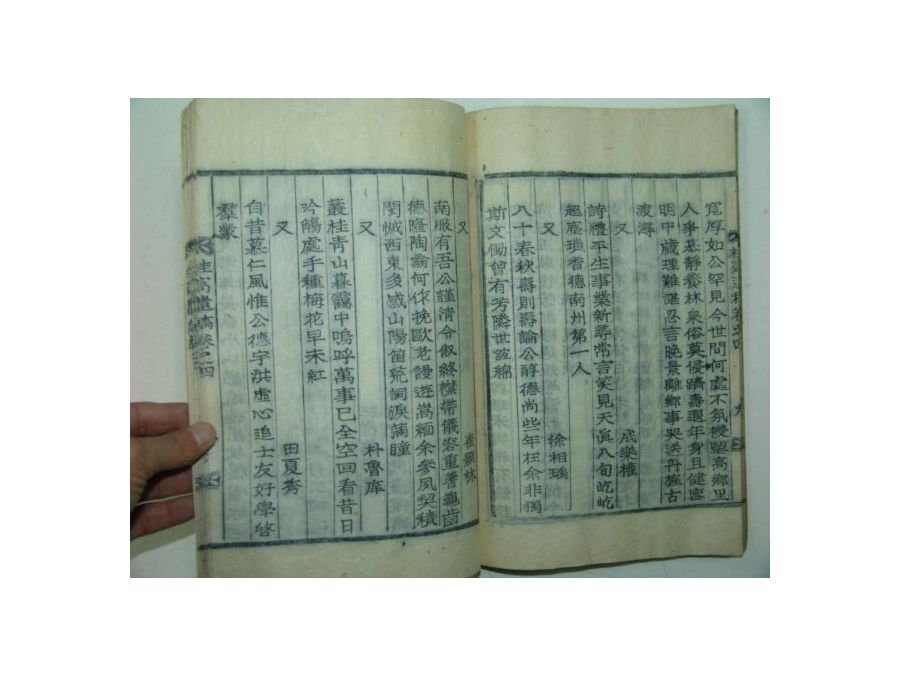 寬厚如公罕見今世間何處不氛㑴望高鄉里
人爭慕靜養林泉俗莫侵躋壽還年身且健窮
明中歲理難諶忍言晩景離鄉事哭送丹旌古
渡潯
又 成樂權
詩禮平生事業新尋常言笑見天眞八旬屹屹
超塵瑞耆德南州第一人
又 徐相瑀
八十春秋壽則壽論公醇德尚些年枉余非獨
斯文慟曾有芳隣世誼綿
又 崔顯林
南服有吾公謹淸令俶終襟帶儀容重蓍龜齒
德隆陶翁何作挽歐老謾遊嵩緬余參夙契積
閔慽西東多感山陽笛荒詞淚滿瞳
又 朴魯庠
叢桂靑山暮靄中嗚呼萬事已全空回看昔日
吟觴處手種梅花早未紅
又 田夏秀
自昔慕仁風惟公德宇洪虛心追士友好學啓
羣蒙
桂窩遺稿卷之四